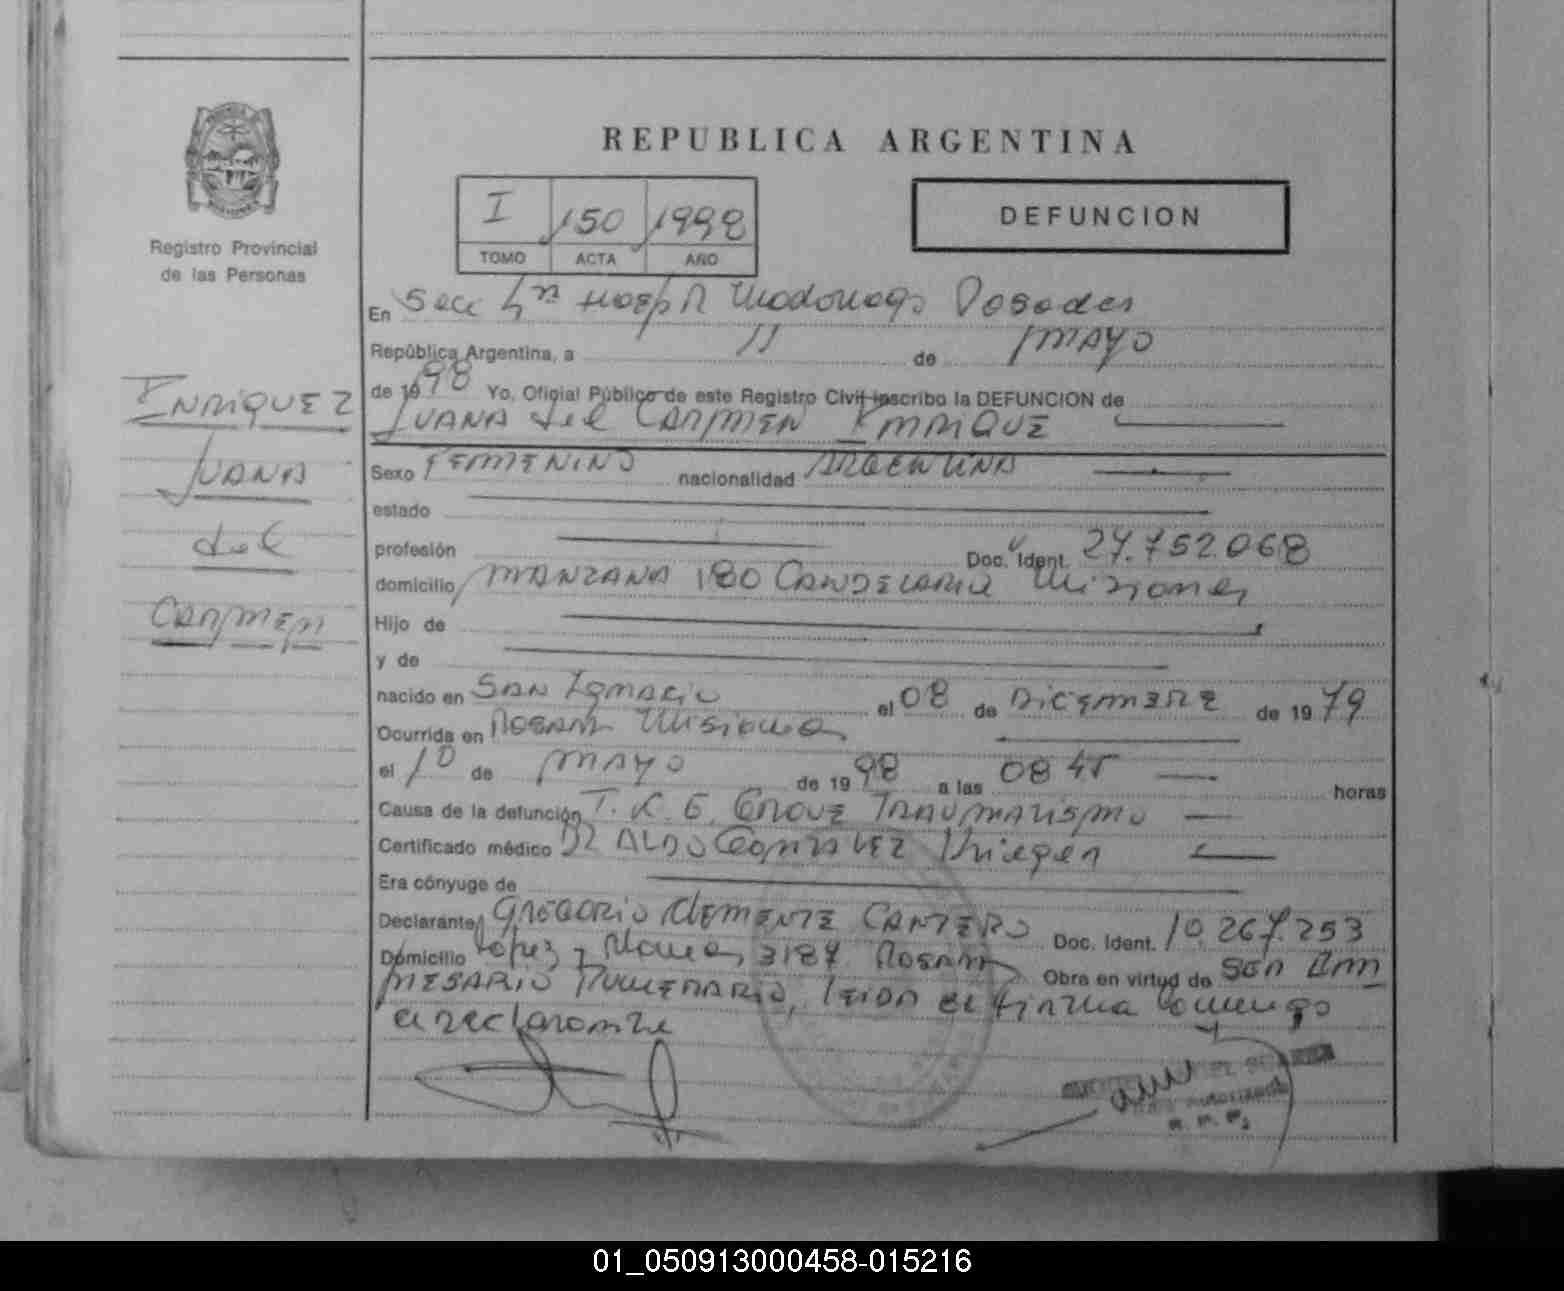 REPUBLICA ARGENTINA
I 150 1998
TOMO ACTA AÑO
DEFUNCION
Registro Provincial
de las Personas
ENRIQUEZ
JUANA
del
CARMEN
En Secc Hosp R Madariaga Posadas
República Argentina, a 11 de MAYO
de 1998 Yo, Oficial Público de este Registro Civil inscribo la DEFUNCION de
JUANA del CARMEN ENRIQUE
Sexo FEMENINO nacionalidad ARGENTINA
estado
profesión Doc. Ident. 27.752.068
domicilio MANZANA 180 CANDELARIA Misiones
Hijo de
y de
nacido en SAN Ignacio el 08 de DICIEMBRE de 1979
Ocurrida en POSADAS Misiones
el 10 de MAYO de 1998 a las 08 45 horas
Causa de la defunción T. K. E. GRAVE TRAUMATISMO
Certificado médico DR ALDO GONZALEZ Krieger
Era cónyuge de
Declarante GREGORIO CLEMENTE CANTERO Doc. Ident. 10.267.253
Domicilio Lopez y Planes 3187 POSADAS Obra en virtud de SER EM
PRESARIO FUNERARIO, LEIDA EL firma conmigo
el declarante
01_050913000458-015216